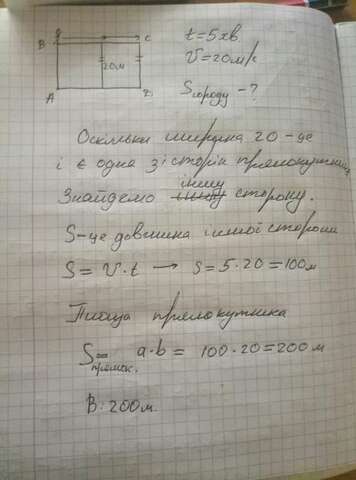 B C
20м
A D
t=5хв
V=20м/х
S городу -?
Оскільки ширина 20 - це
і є одна зі сторін прямокутника
Знайдемо іншу сторону.
S-це довжина іншої сторони
S = V·t → S = 5·20 = 100м
Площа прямокутника
S прямок. = a·b = 100·20 = 200 м
В: 200м.